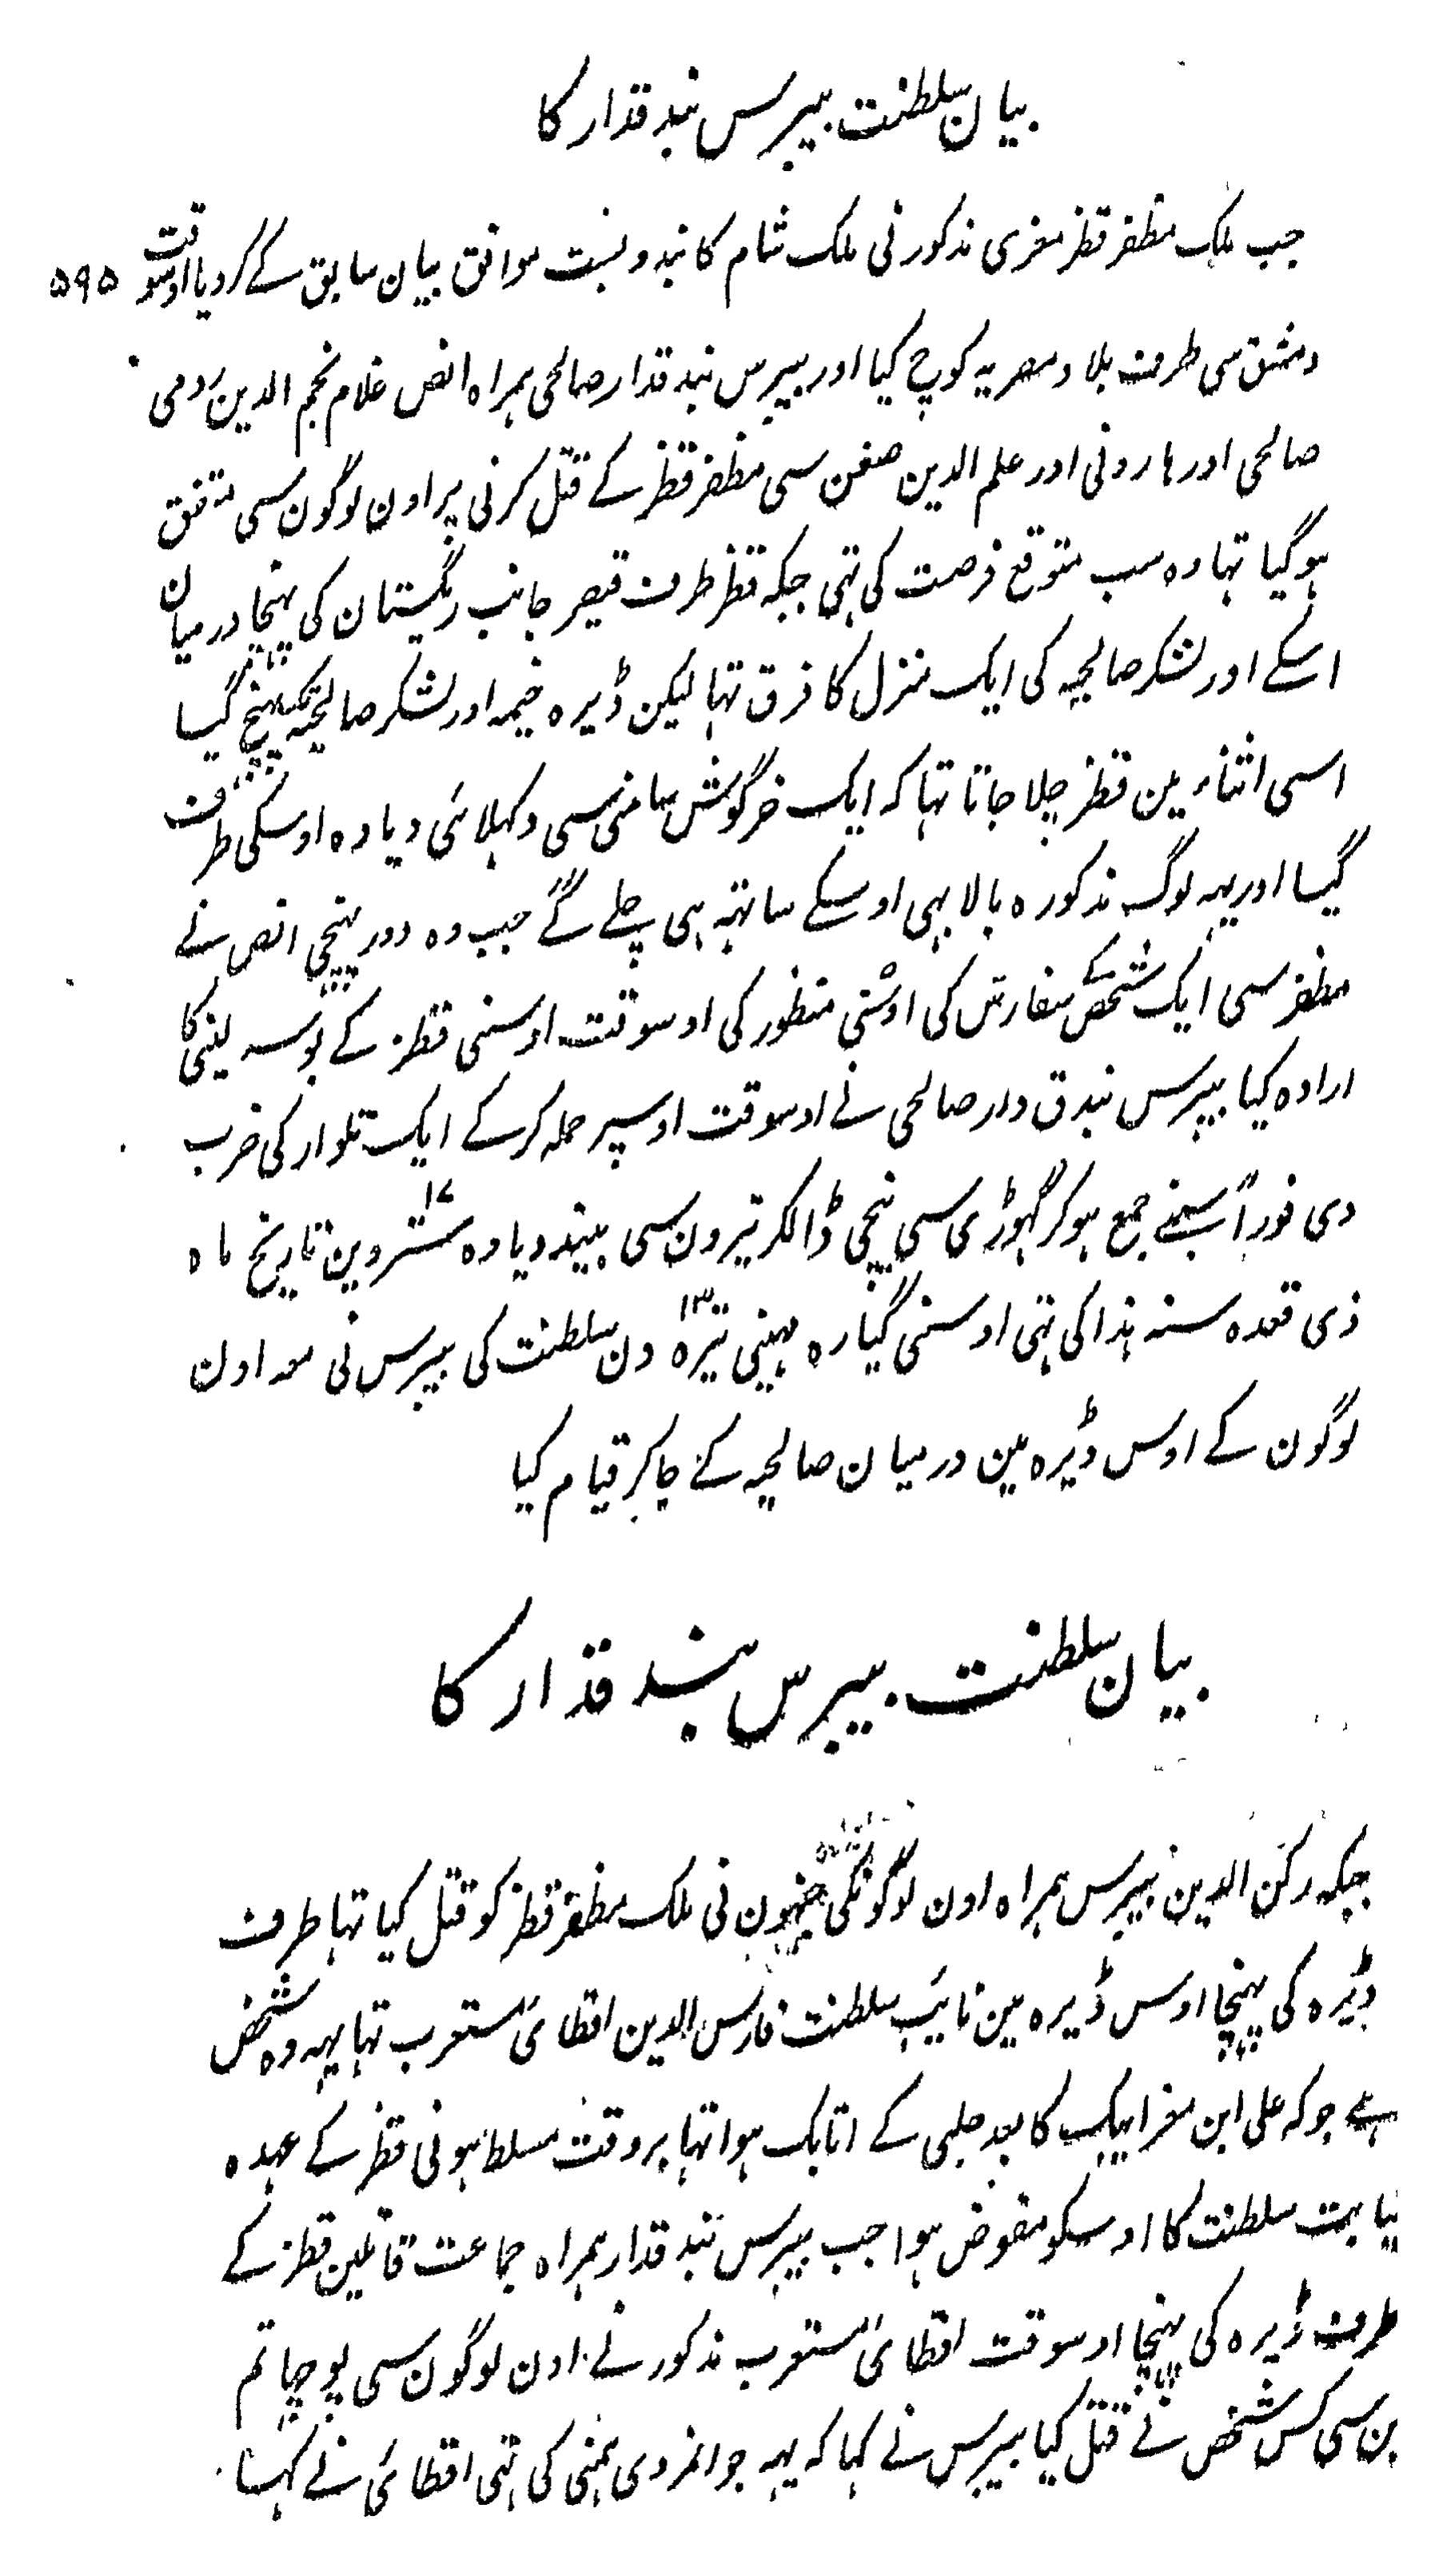 بیان سلطنت بیبرس بندقدار کا
جب ملک مظفر قطز مغری مذکور نی ملک شام کا بندوبست موافق بیان سابق کے کر دیا اوسوقت ۵۹۵
دمشق سی طرف بلاد مصریہ کوچ کیا اور بیبرس بندقدار صالحی ہمراہ انص غلام نجم الدین رومی
صالحی اور ہارونی اور علم الدین صغن سی مظفر قطز کے قتل کرنی پر اون لوگون سی متفق
ہوگیا تہا وہ سب متوقع فرصت کی تہی جبکہ قطز طرف قیصر جانب ریگستان کی پہنچا درمیان
اسکے اور لشکر صالحیہ کی ایک منزل کا فرق تہا لیکن ڈیرہ خیمہ اور لشکر صالحیہ تک پہنچ گیا
اسی اثناء مین قطز چلا جاتا تہا کہ ایک خرگوش سامنی سی دکہلائی دیا وہ اوسکی طرف
گیا اور یہہ لوگ مذکورہ بالا بہی اوسکے ساتہہ ہی چلے گئے جب وہ دور پہنچی انص نے
مظفر سی ایک شخص کے سفارش کی اوسنی منظور کی اوسوقت اوسنی قطز کے بوسہ لینی کا
ارادہ کیا بیبرس بندق دار صالحی نے اوسوقت اوسپر حملہ کرکے ایک تلوار کی ضرب
دی فوراً سبہنے جمع ہوکر گہوڑی سی نیچی ڈالکر تیرون سی بیند دیا وہ ستروین ۱۷ تاریخ ماہ
ذی قعدہ سنہ ہذا کی تہی اوسنی گیارہ مہینی تیرہ ۱۳ دن سلطنت کی بیبرس نی معہ اون
لوگون کے اوس ڈیرہ مین درمیان صالحیہ کے جاکر قیام کیا
بیان سلطنت بیبرس بندقدار کا
جبکہ رکن الدین بیبرس ہمراہ اون لوگونکی جنہون نی ملک مظفر قطز کو قتل کیا تہا طرف
ڈیرہ کی پہنچا اوس ڈیرہ مین نایب سلطنت فارس الدین اقطائی مستعرب تہا یہہ وہ شخص
ہے جو کہ علی ابن معز ایبک کا بعد حلبی کے اتابک ہوا تہا بروقت مسلط ہونی قطز کے عہدہ
نیابت سلطنت کا اوسکو مفوض ہوا جب بیبرس بندقدار ہمراہ جماعت قاتلین قطز کے
طرف ڈیرہ کی پہنچا اوسوقت اقطائی مستعرب مذکور نے اون لوگون سی پوچہا تم
مین سی کس شخص نے قتل کیا بیبرس نے کہا کہ یہہ جوانمردی ہمنی کی تہی اقطائی نے کہا